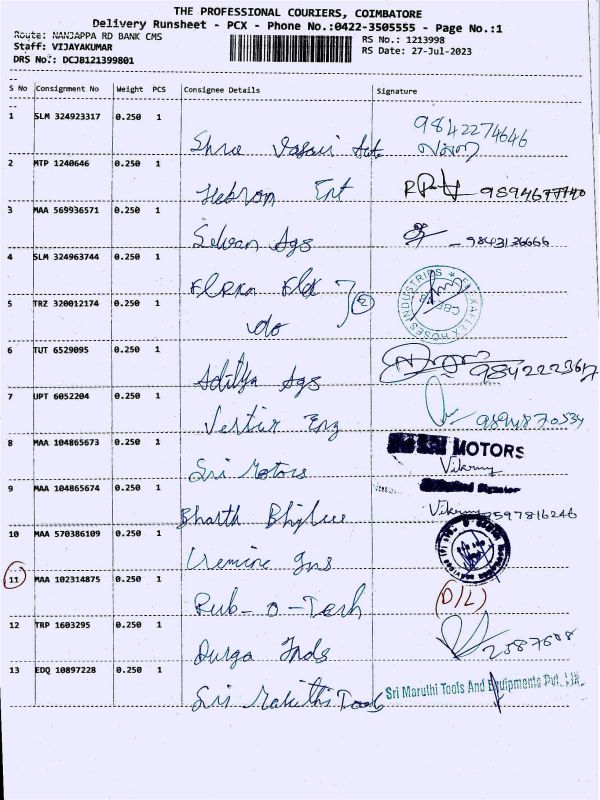 THE PROFESSIONAL COURIERS, COIMBATORE
Delivery Runsheet - PCX - Phone No.:0422-3505555 - Page No.:1
Route: NANJAPPA RD BANK CMS
RS No.: 1213998
Staff: VIJAYAKUMAR
RS Date: 27-Jul-2023
DRS No.: DCJB121399801
S No Consignment No Weight PCS Consignee Details Signature
1 SLM 324923317 0.250 1 9842274646
Shree
2 MTP 1240646 0.250 1
Hebron Ent
3 MAA 569936571 0.250 1
Selvan Ags 9843136666
4 SLM 324963744 0.250 1
Flex 2
5 TRZ 320012174 0.250 1
do
6 TUT 6529095 0.250 1
Aditya Ags
7 UPT 6052204 0.250 1
9894870534
8 MAA 104865673 0.250 1 SRI MOTORS
Sri Motors
9 MAA 104865674 0.250 1
Bharth
10 MAA 570386109 0.250 1
11 MAA 102314875 0.250 1 (D/L)
Rub-o-Tech
12 TRP 1603295 0.250 1
Durga Inds
13 EDQ 10897228 0.250 1
Sri Tools Sri Maruthi Tools And Equipments Pvt. Ltd.